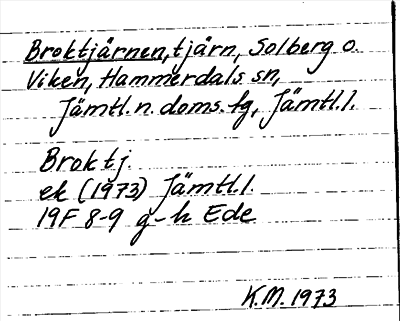 Broktjärnen, tjärn, Solberg o.
Viken, Hammerdals sn,
Jämtl. n. doms. fg, Jämtl. l.
Broktj.
ek (1973) Jämtl. l.
19F 8-9 g-h Ede
K.M. 1973